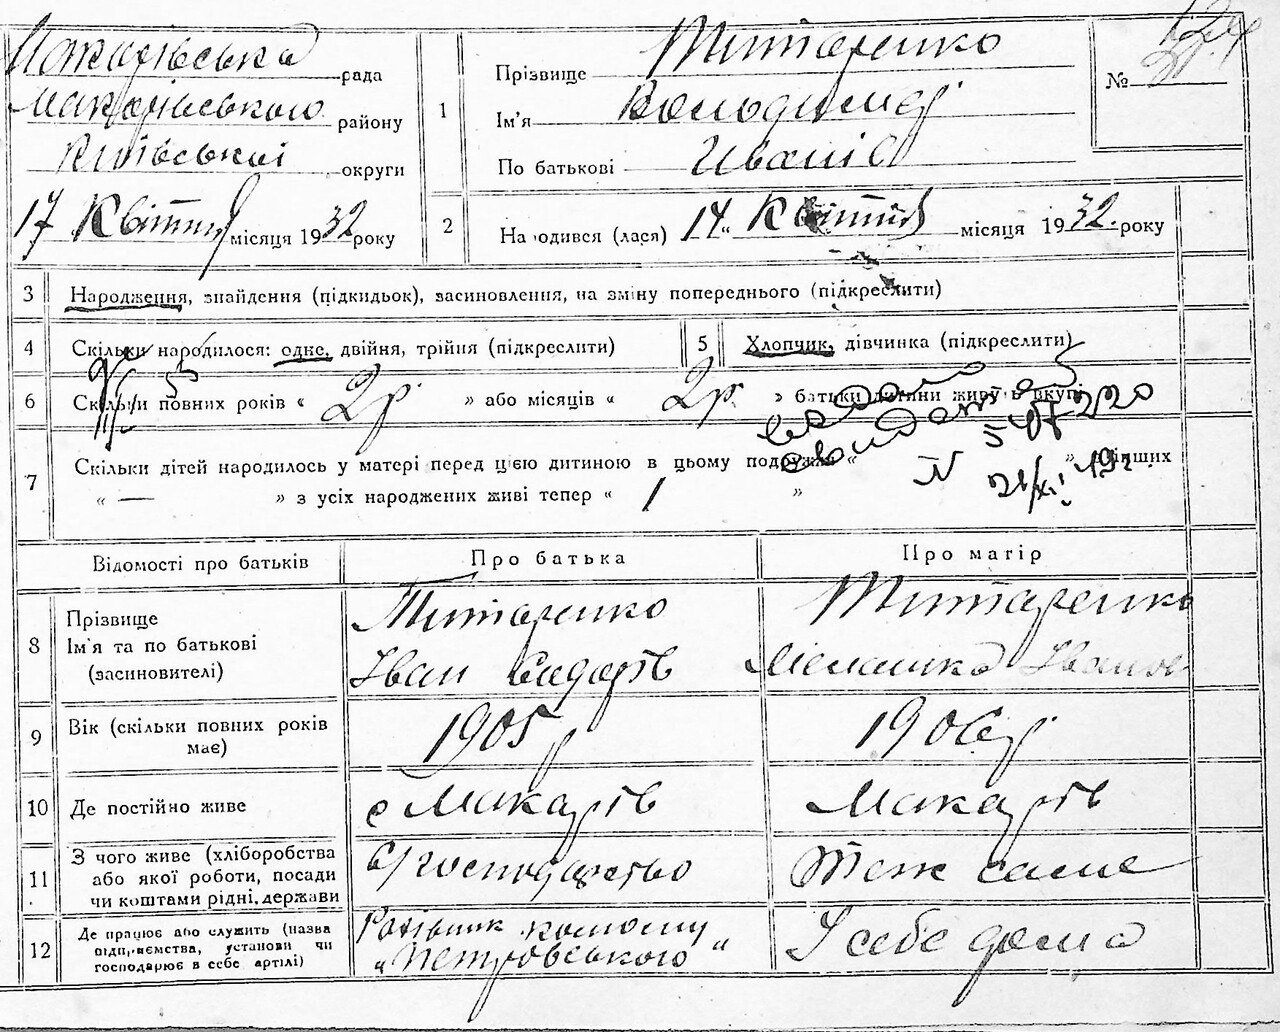 Макарівська рада
Макарівського району
Київської округи
17 Квітня місяця 1932 року
1 Прізвище Титаренко
Ім'я Вольодимер
По батькові Иванів
№
2 Народився (лася) 14 " Квітня місяця 1932. року
3 Народження, знайдення (підкидьок), засиновлення, на зміну попереднього (підкреслити)
4 Скільки народилося: одне, двійня, трійня (підкреслити)
5 Хлопчик, дівчинка (підкреслити)
6 Скільки повних років « 2р » або місяців « 2р. » батьки дитини живуть вкупі
7 Скільки дітей народилось у матері перед цією дитиною в цьому подружжі « » інших
« — » з усіх народжених живі тепер « 1 »
N
Відомості про батьків
Про батька
Про матір
8 Прізвище
Ім'я та по батькові
(засиновителі)
Титаренко
Іван Сидорів
Титаренко
Меланка Іванов
9 Вік (скільки повних років має)
1905 р
1906 р
10 Де постійно живе
с Макарів
Макарів
11 З чого живе (хліборобства
або якої роботи, посади
чи коштами рідні, держави
С/господарство
Теж саме
12 Де працює або служить (назва
підприємства, установи чи
господарює в себе артілі)
Робівник колгоспу
„Петровського"
У себе дома